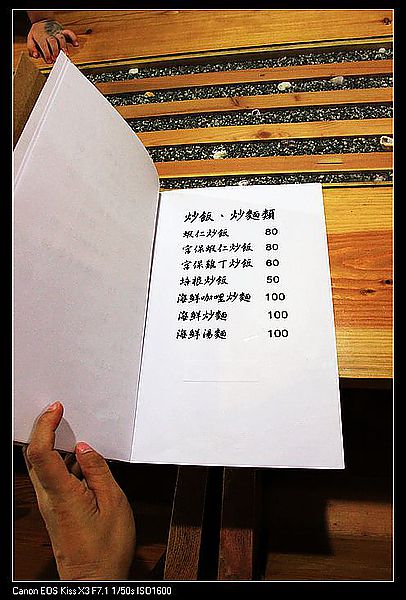 炒飯、炒麵類
蝦仁炒飯 80
宮保蝦仁炒飯 80
宮保雞丁炒飯 60
培根炒飯 50
海鮮咖哩炒麵 100
海鮮炒麵 100
海鮮湯麵 100
Canon EOS Kiss X3 F7.1 1/50s ISO1600